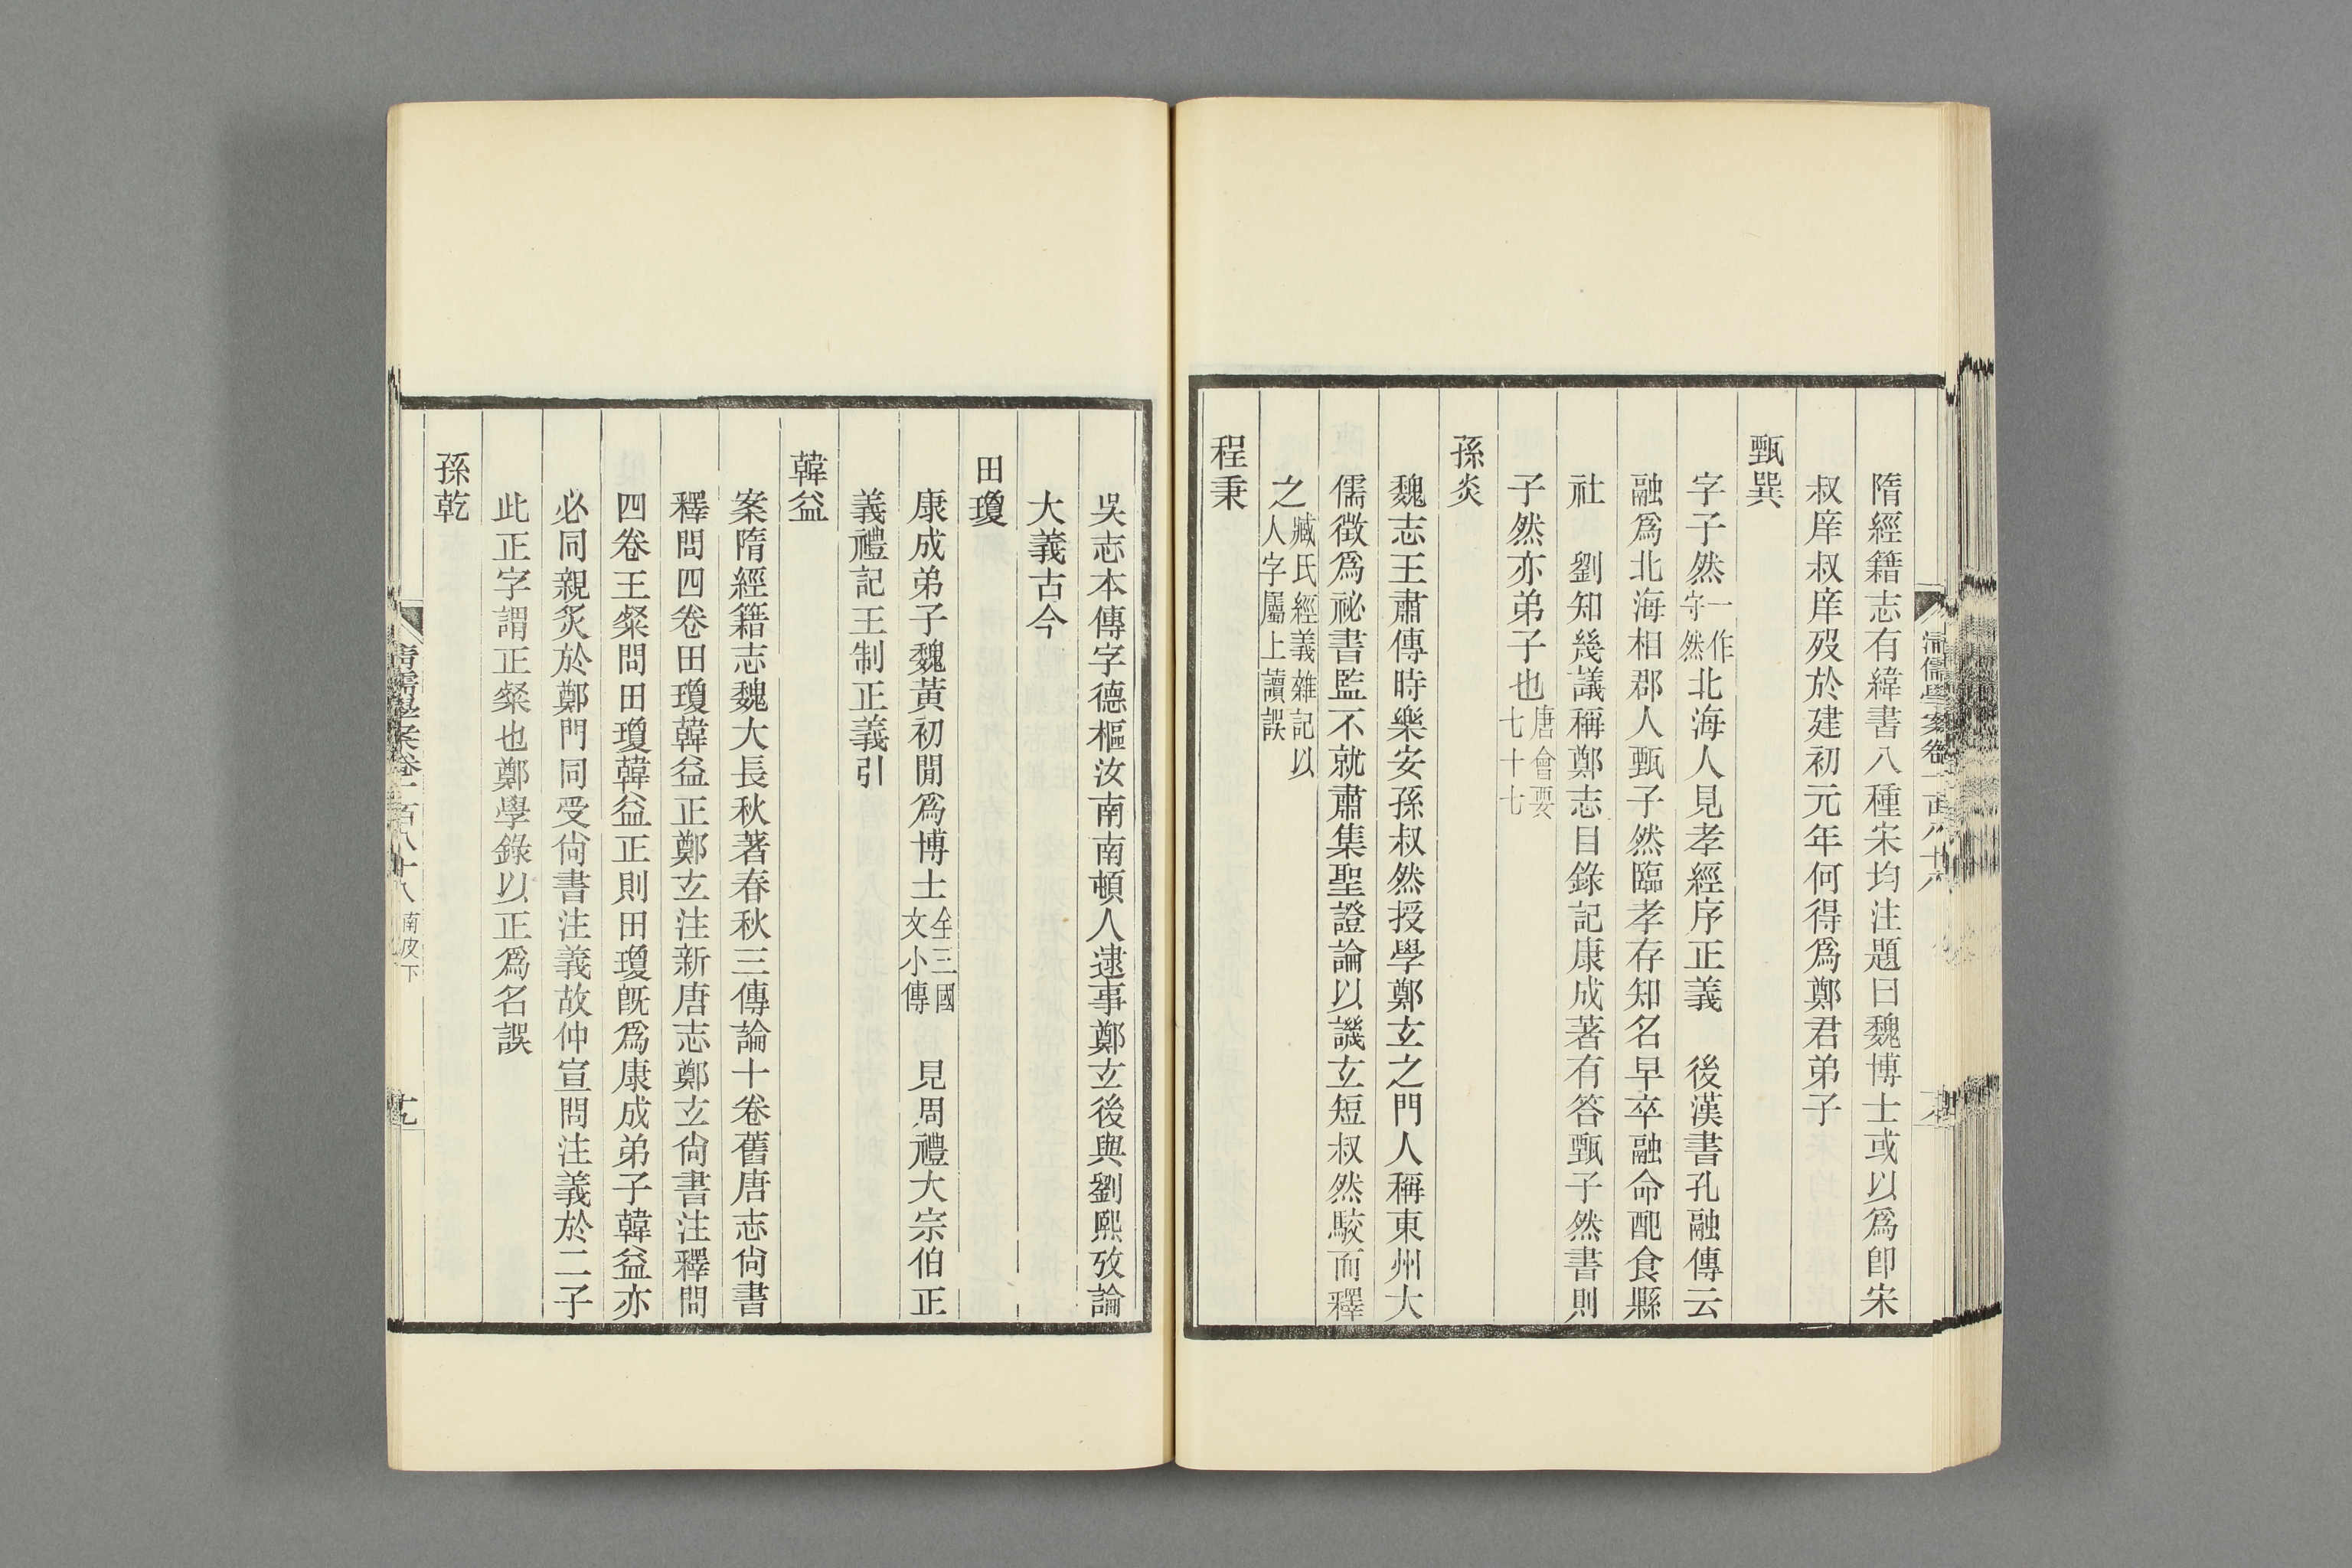 隋經籍志有緯書八種宋均注題曰魏博士或以爲卽宋
叔庠叔庠歿於建初元年何得爲鄭君弟子
甄巽
字子然一作守然北海人見孝經序正義　後漢書孔融傳云
融爲北海相郡人甄子然臨孝存知名早卒融命配食縣
社　劉知幾議稱鄭志目錄記康成著有答甄子然書則
子然亦弟子也唐會要七十七
孫炎
魏志王肅傳時樂安孫叔然授學鄭玄之門人稱東州大
儒徵爲祕書監不就肅集聖證論以譏玄短叔然駮而釋
之臧氏經義雜記以人字屬上讀誤
程秉
吳志本傳字德樞汝南南頓人逮事鄭玄後與劉熙攷論
大義古今
田瓊
康成弟子魏黃初閒爲博士全三國文小傳　見周禮大宗伯正
義禮記王制正義引
韓益
案隋經籍志魏大長秋著春秋三傳論十卷舊唐志尙書
釋問四卷田瓊韓益正鄭玄注新唐志鄭玄尙書注釋問
四卷王粲問田瓊韓益正則田瓊旣爲康成弟子韓益亦
必同親炙於鄭門同受尙書注義故仲宣問注義於二子
此正字謂正粲也鄭學錄以正爲名誤
孫乾
清儒學案卷一百八十八　南皮下　十九